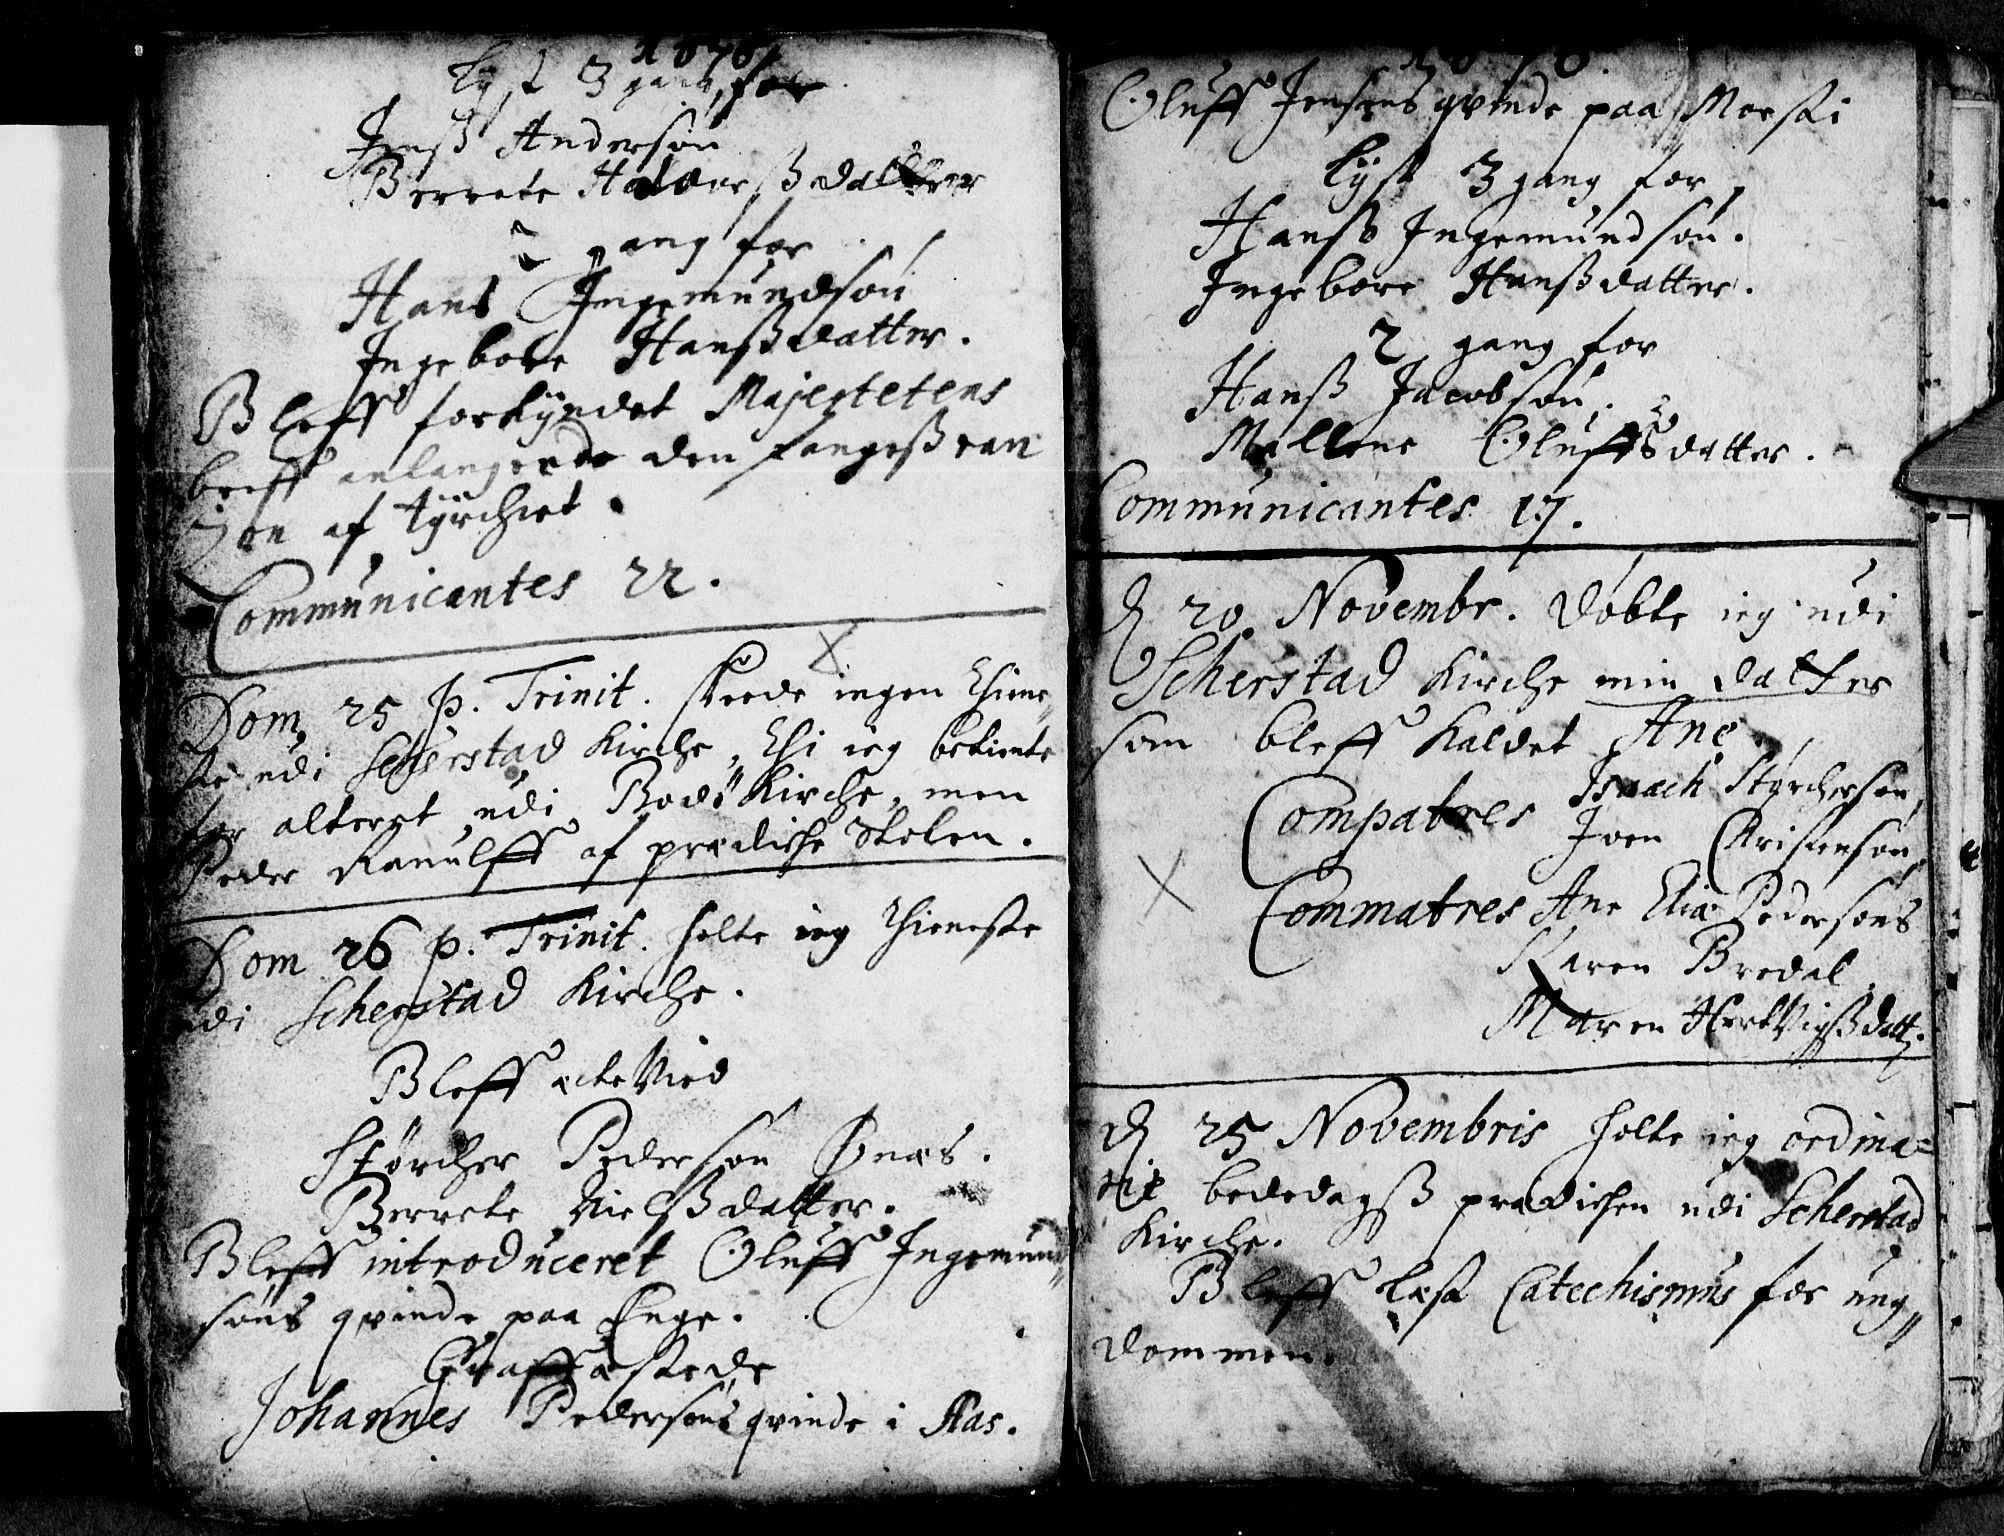 1676
Lyst 3 gang for
Jenß Andersøn
Berrete Halduerßdatter
2 gang for
Hans Ingemundsøn
Ingebore Hanßdatter.
Bleff forkyndet Majestetens
breff anlangende den fangeß ran
zon af tyrchiet.
Communicantes 22.
Dom. 25 p. Trinit. skeede ingen thiene„
ste udi Scherstad Kirche, thi ieg betiente
for alteret udi Bodø Kirche, men
Peder Ranulff af prædiche Stolen.
Dom 26 p. Trinit. holte ieg thieneste
udi Scherstad Kirche.
Bleff ecteVied
Størcher Pedersøn Ønæs.
Berrete Nielßdatter.
Bleff introduceret Oluff Ingemund„
søns qvinde paa Enge.
Graffæstede
Johannes Pedersøns qvinde i Aas.
1676
Oluff Jensøns qvinde paa Morski
Lyst 3 gang for
Hanß Ingemundsøn.
Ingebore Hanßdatter.
2 gang for
Hanß Jacobsøn.
Mallene Oluffsdatter.
Communicantes 17.
D 20 Novembr. døbte ieg udi
Scherstad Kirche min datter
som bleff kaldet Ane
Compatres Isaach Størchersøn,
Joen Christensøn,
Commatres Ane Eliæ Pedersøns
Karen Bredal
Maren HertVigßdatt.
D 25 Novembris holte ieg ordina=
rie bededagß prædichen udi Scherstad
Kirche.
Bleff læst Catechismus for ung„
dommen.